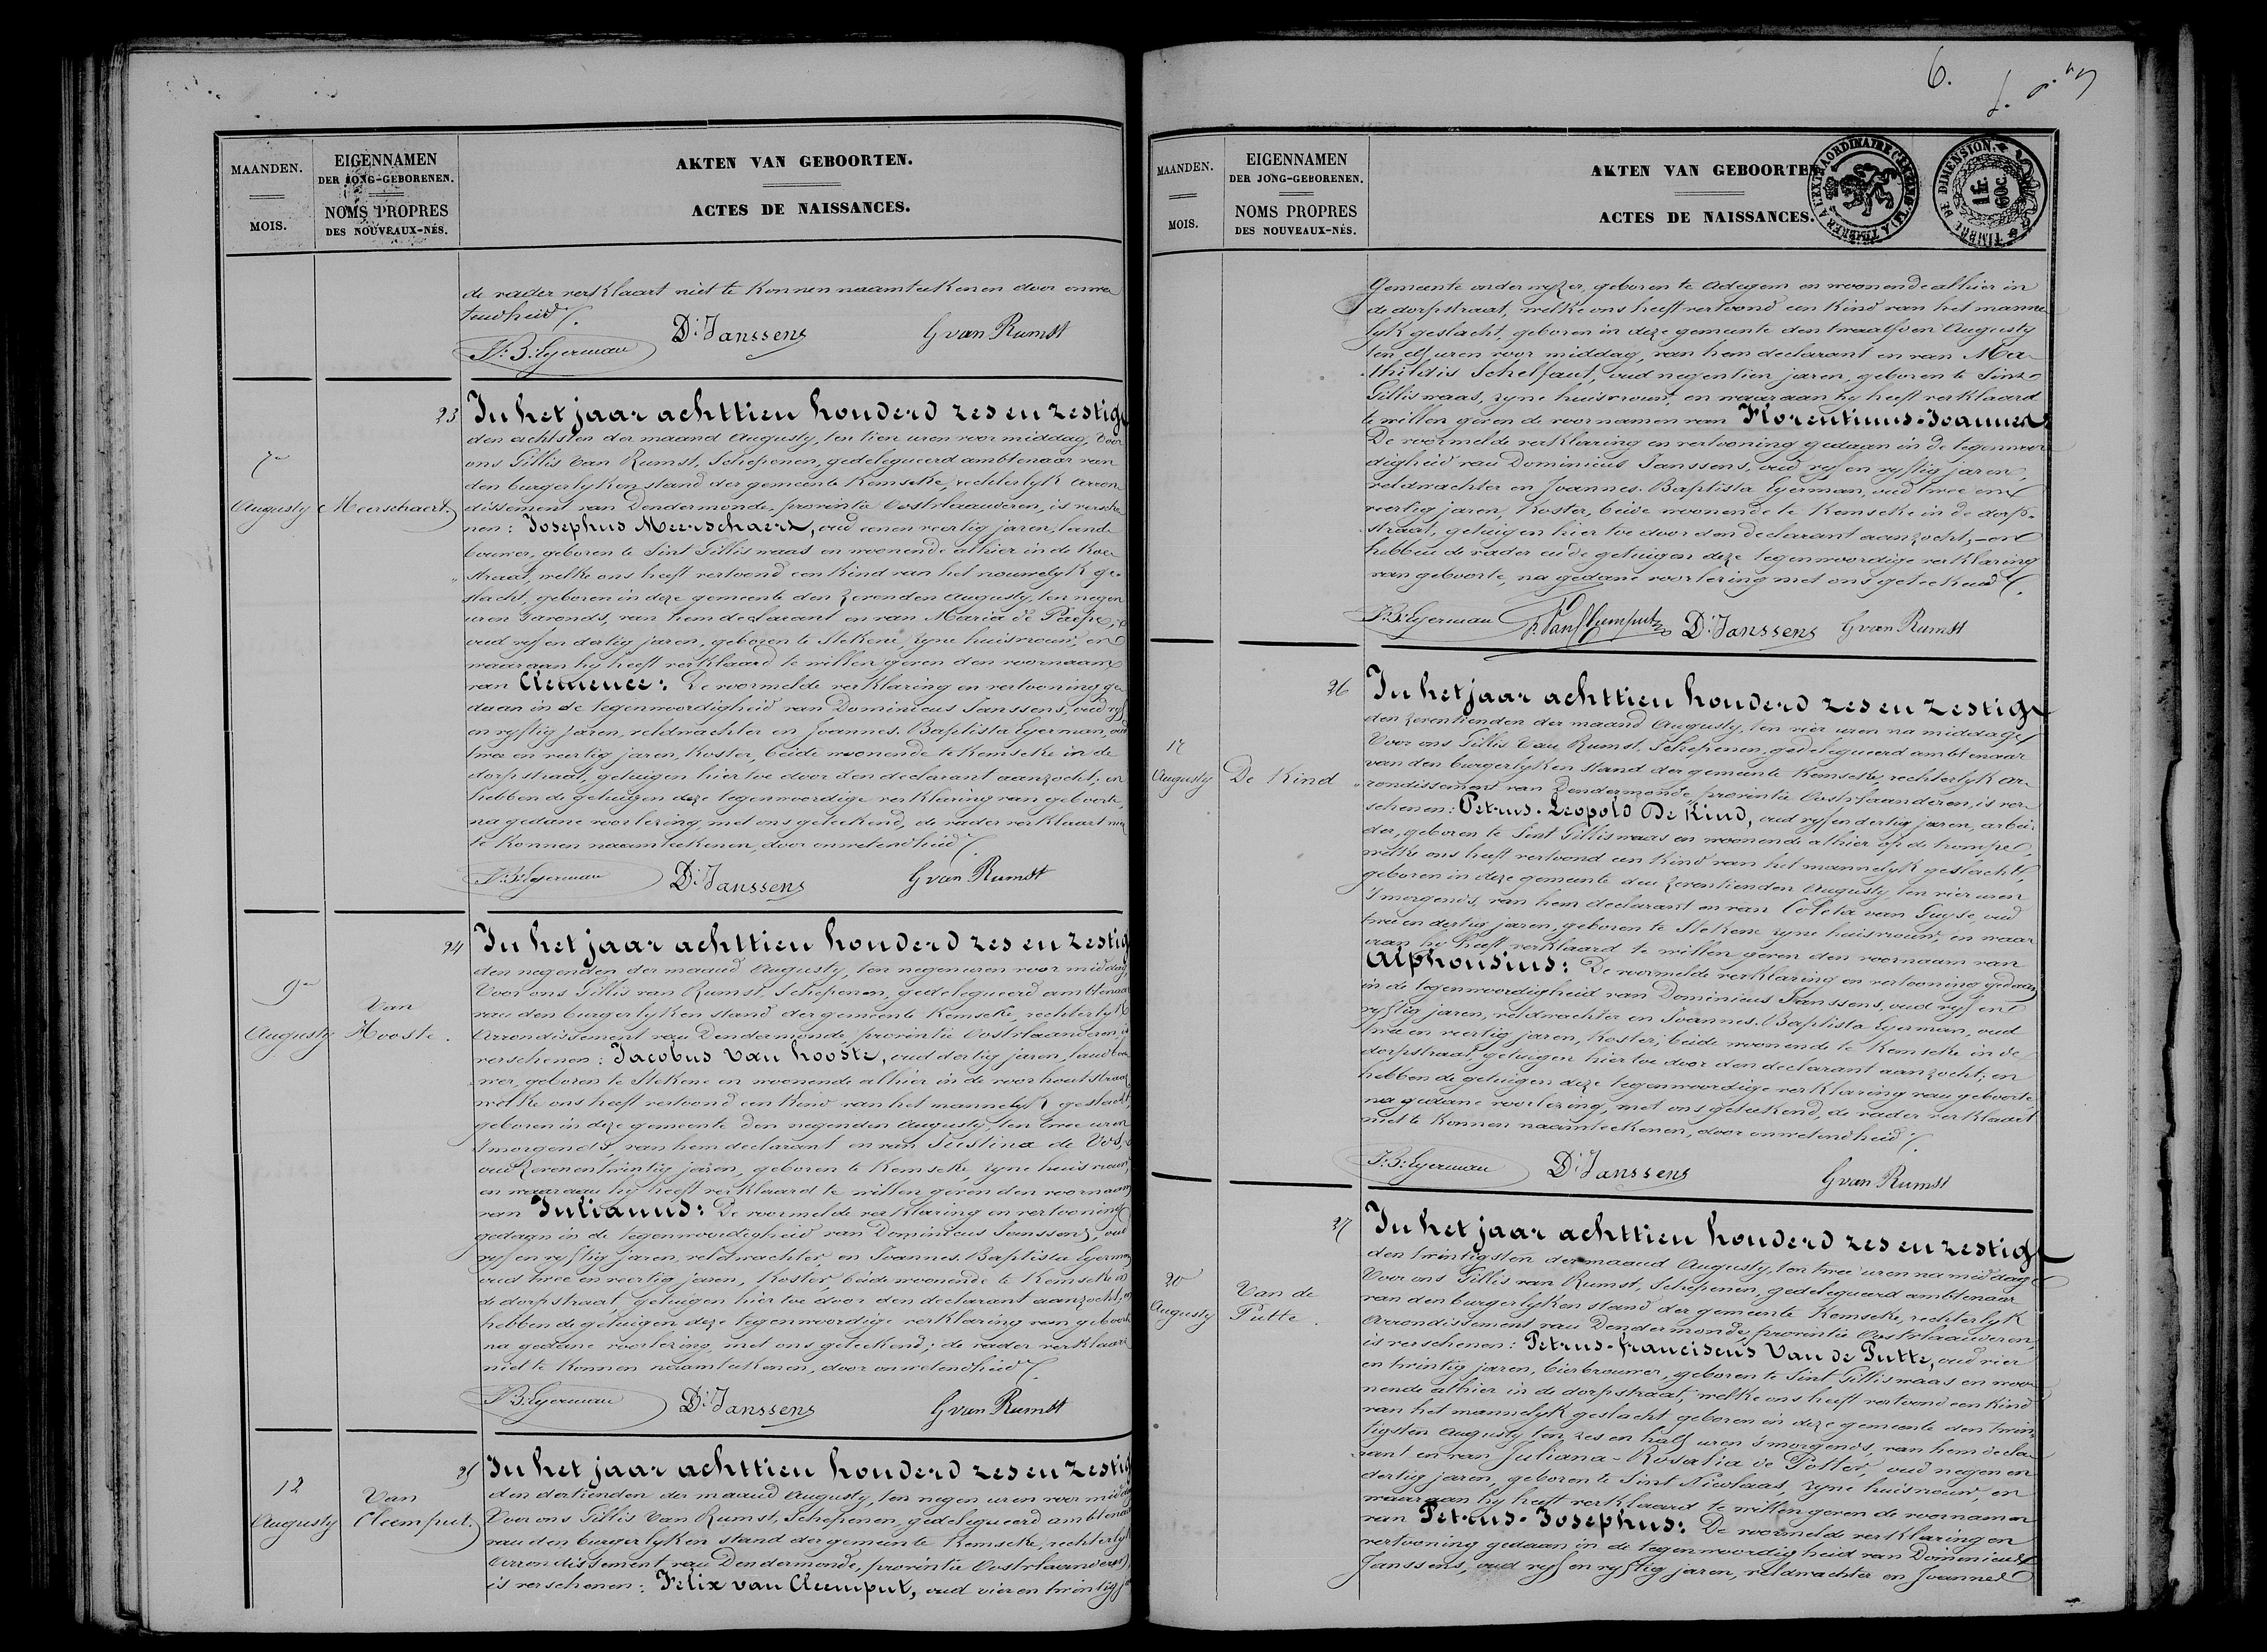 MAANDEN.
MOIS.
EIGENNAMEN
DER JONG-GEBORENEN.
NOMS PROPRES
DES NOUVEAUX-NÉS.
AKTEN VAN GEBOORTEN.
ACTES DE NAISSANCES.
de vader verklaart niet te konnen naamteekenen door onwe
tendheid
J: B: Eyerman D: Janssens G van Rumst
7en
Augusty
Meerschaert
23
In het jaar achttien honderd zes en zestig
den achtsten der maand Augusty, ten tien uren voor middag, Voor
ons Gillis Van Rumst, Schepenen, gedelegueerd ambtenaar van
den burgerlyken stand der gemeente Kemseke, rechterlyk arron
dissement van Dendermonde, provintie Oostvlaanderen, is versche
nen: Josephus Meerschaert, oud eenen veertig jaren, land
bouwer, geboren te Sint Gillis waas en woonende alhier in de Koe
straat, welke ons heeft vertoond een Kind van het vrouwelyk ge-
slacht, geboren in deze gemeente den zevenden Augusty, ten negen
uren 's avonds, van hem declarant en van Maria de Paepe,
oud vyf en dertig jaren, geboren te Stekene, zyne huisvrouw, en
waaraan hy heeft verklaard te willen geven den voornaam
van Clemence: De voormelde verklaring en vertooning ge
daan in de tegenwoordigheid van Dominicus Janssens, oud vyf
en vyftig jaren, veldwachter en Joannes-Baptista Eyerman, oud
twee en veertig jaren, Koster, beide woonende te Kemseke in de
dorpstraat, getuigen hier toe door den declarant aanzocht; en
hebben de getuigen deze tegenwoordige verklaring van geboorte,
na gedane voorlezing, met ons geteekend, de vader verklaart niet
te konnen naamteekenen, door onwetendheid
J: B: Eyerman D: Janssens G van Rumst
9en
Augusty
Van
Hooste.
24
In het jaar achttien honderd zes en zestig
den negenden der maand Augusty, ten negen uren voor middag,
Voor ons Gillis van Rumst, Schepenen, gedelegueerd ambtenaar
van den burgerlyken stand der gemeente Kemseke, rechterlyk
Arrondissement van Dendermonde, provintie Oostvlaanderen, is
verschenen: Jacobus Van hooste, oud dertig jaren, landbou
wer, geboren te Stekene en woonende alhier in de voorhoutstraat,
welke ons heeft vertoond een Kind van het mannelyk geslacht,
geboren in deze gemeente den negenden Augusty, ten twee uren
's morgends, van hem declarant en van Justina de Vos,
oud zeven en twintig jaren, geboren te Kemseke, zyne huisvrouw,
en waaraan hy heeft verklaard te willen geven den voornaam
van Julianus: De voormelde verklaring en vertooning
gedaan in de tegenwoordigheid van Dominicus Janssens, oud
vyf en vyftig jaren, veldwachter, en Joannes-Baptista Eyerman
oud twee en veertig jaren, Koster, beide woonende te Kemseke in
de dorpstraat, getuigen hier toe door den declarant aanzocht, en
hebben de getuigen deze tegenwoordige verklaring van geboorte
na gedane voorlezing, met ons geteekend; de vader verklaart
niet te konnen naamteekenen, door onwetendheid
J: B: Eyerman D: Janssens G van Rumst
12
Augusty
Van
Cleemput.
25
In het jaar achttien honderd zes en zestig
den dertienden der maand Augusty, ten negen uren voor middag
Voor ons Gillis Van Rumst, Schepenen, gedelegueerd ambtenaar
van den burgerlyken stand der gemeente Kemseke, rechterlyk
Arrondissement van Dendermonde, provintie Oostvlaanderen,
is verschenen: Felix van Cleemput, oud vier en twintig ja
6.
MAANDEN.
MOIS.
EIGENNAMEN
DER JONG-GEBORENEN.
NOMS PROPRES
DES NOUVEAUX-NÉS.
AKTEN VAN GEBOORTEN
ACTES DE NAISSANCES.
TIMBRE DE DIMENSION.
1 fr.
60 c.
Gemeente onderwyzer, geboren te Adegem en woonende alhier in
de dorpstraat, welke ons heeft vertoond een Kind van het manne
lyk geslacht, geboren in deze gemeente den twaalfden Augusty
ten elf uren voor middag, van hem declarant en van Ma-
thildis Schelfaut, oud negentien jaren, geboren te Sint
Gillis waas, zyne huisvrouw, en waaraan hy heeft verklaard
te willen geven de voornamen van Florentinus-Joannes
De voormelde verklaring en vertooning gedaan in de tegenwoor
digheid van Dominicus Janssens, oud vyf en vyftig jaren,
veldwachter en Joannes-Baptista Eyerman, oud twee en
veertig jaren, Koster, beide woonende te Kemseke in de dorp-
straat, getuigen hier toe door den declarant aanzocht; en
hebben de vader en de getuigen deze tegenwoordige verklaring
van geboorte, na gedane voorlezing met ons geteekend
J: B: Eyerman F. Van Cleemput D: Janssens G van Rumst
17
Augusty
De Kind
26
In het jaar achttien honderd zes en zestig
den zeventienden der maand Augusty, ten vier uren na middag
Voor ons Gillis Van Rumst, Schepenen, gedelegueerd ambtenaar
van den burgerlyken stand der gemeente Kemseke, rechterlyk ar-
rondissement van Dendermonde, provintie Oostvlaanderen, is ver-
schenen: Petrus-Leopold De Kind, oud vyf en dertig jaren, arbei-
der, geboren te Sint Gillis waas en woonende alhier op de trompe,
welke ons heeft vertoond een Kind van het mannelyk geslacht,
geboren in deze gemeente den zeventienden Augusty, ten vier uren
's morgends, van hem declarant en van Coleta van Guyse, oud
twee en dertig jaren, geboren te Stekene zyne huisvrouw, en waar
aan hy heeft verklaard te willen geven den voornaam van
Alphonsius: De voormelde verklaring en vertooning gedaan
in de tegenwoordigheid van Dominicus Janssens, oud vyf en
vyftig jaren, veldwachter en Joannes-Baptista Eyerman, oud
twee en veertig jaren, Koster, beide woonende te Kemseke in de
dorpstraat, getuigen hier toe door den declarant aanzocht; en
hebben de getuigen deze tegenwoordige verklaring van geboorte,
na gedane voorlezing, met ons geteekend, de vader verklaart
niet te konnen naamteekenen, door onwetendheid
J: B: Eyerman D: Janssens G van Rumst
20
Augusty
Van de
Putte.
27
In het jaar achttien honderd zes en zestig
den twintigsten der maand Augusty, ten twee uren na middag
Voor ons Gillis van Rumst, Schepenen, gedelegueerd ambtenaar
van den burgerlyken stand der gemeente Kemseke, rechterlyk
Arrondissement van Dendermonde, provintie Oostvlaanderen,
is verschenen: Petrus-franciscus Van de Putte, oud vier
en twintig jaren, bierbrouwer, geboren te Sint Gillis waas en woo-
nende alhier in de dorpstraat, welke ons heeft vertoond een Kind
van het mannelyk geslacht geboren in deze gemeente den twin-
tigsten Augusty, ten zes en half uren 's morgends, van hem decla-
rant en van Juliana-Rosalia de Potter, oud negen en
dertig jaren, geboren te Sint Nicolaas, zyne huisvrouw, en
waaraan hy heeft verklaard te willen geven de voornamen
van Petrus-Josephus: De voormelde verklaring en
vertooning gedaan in de tegenwoordigheid van Dominicus
Janssens, oud vyf en vyftig jaren, veldwachter en Joannes